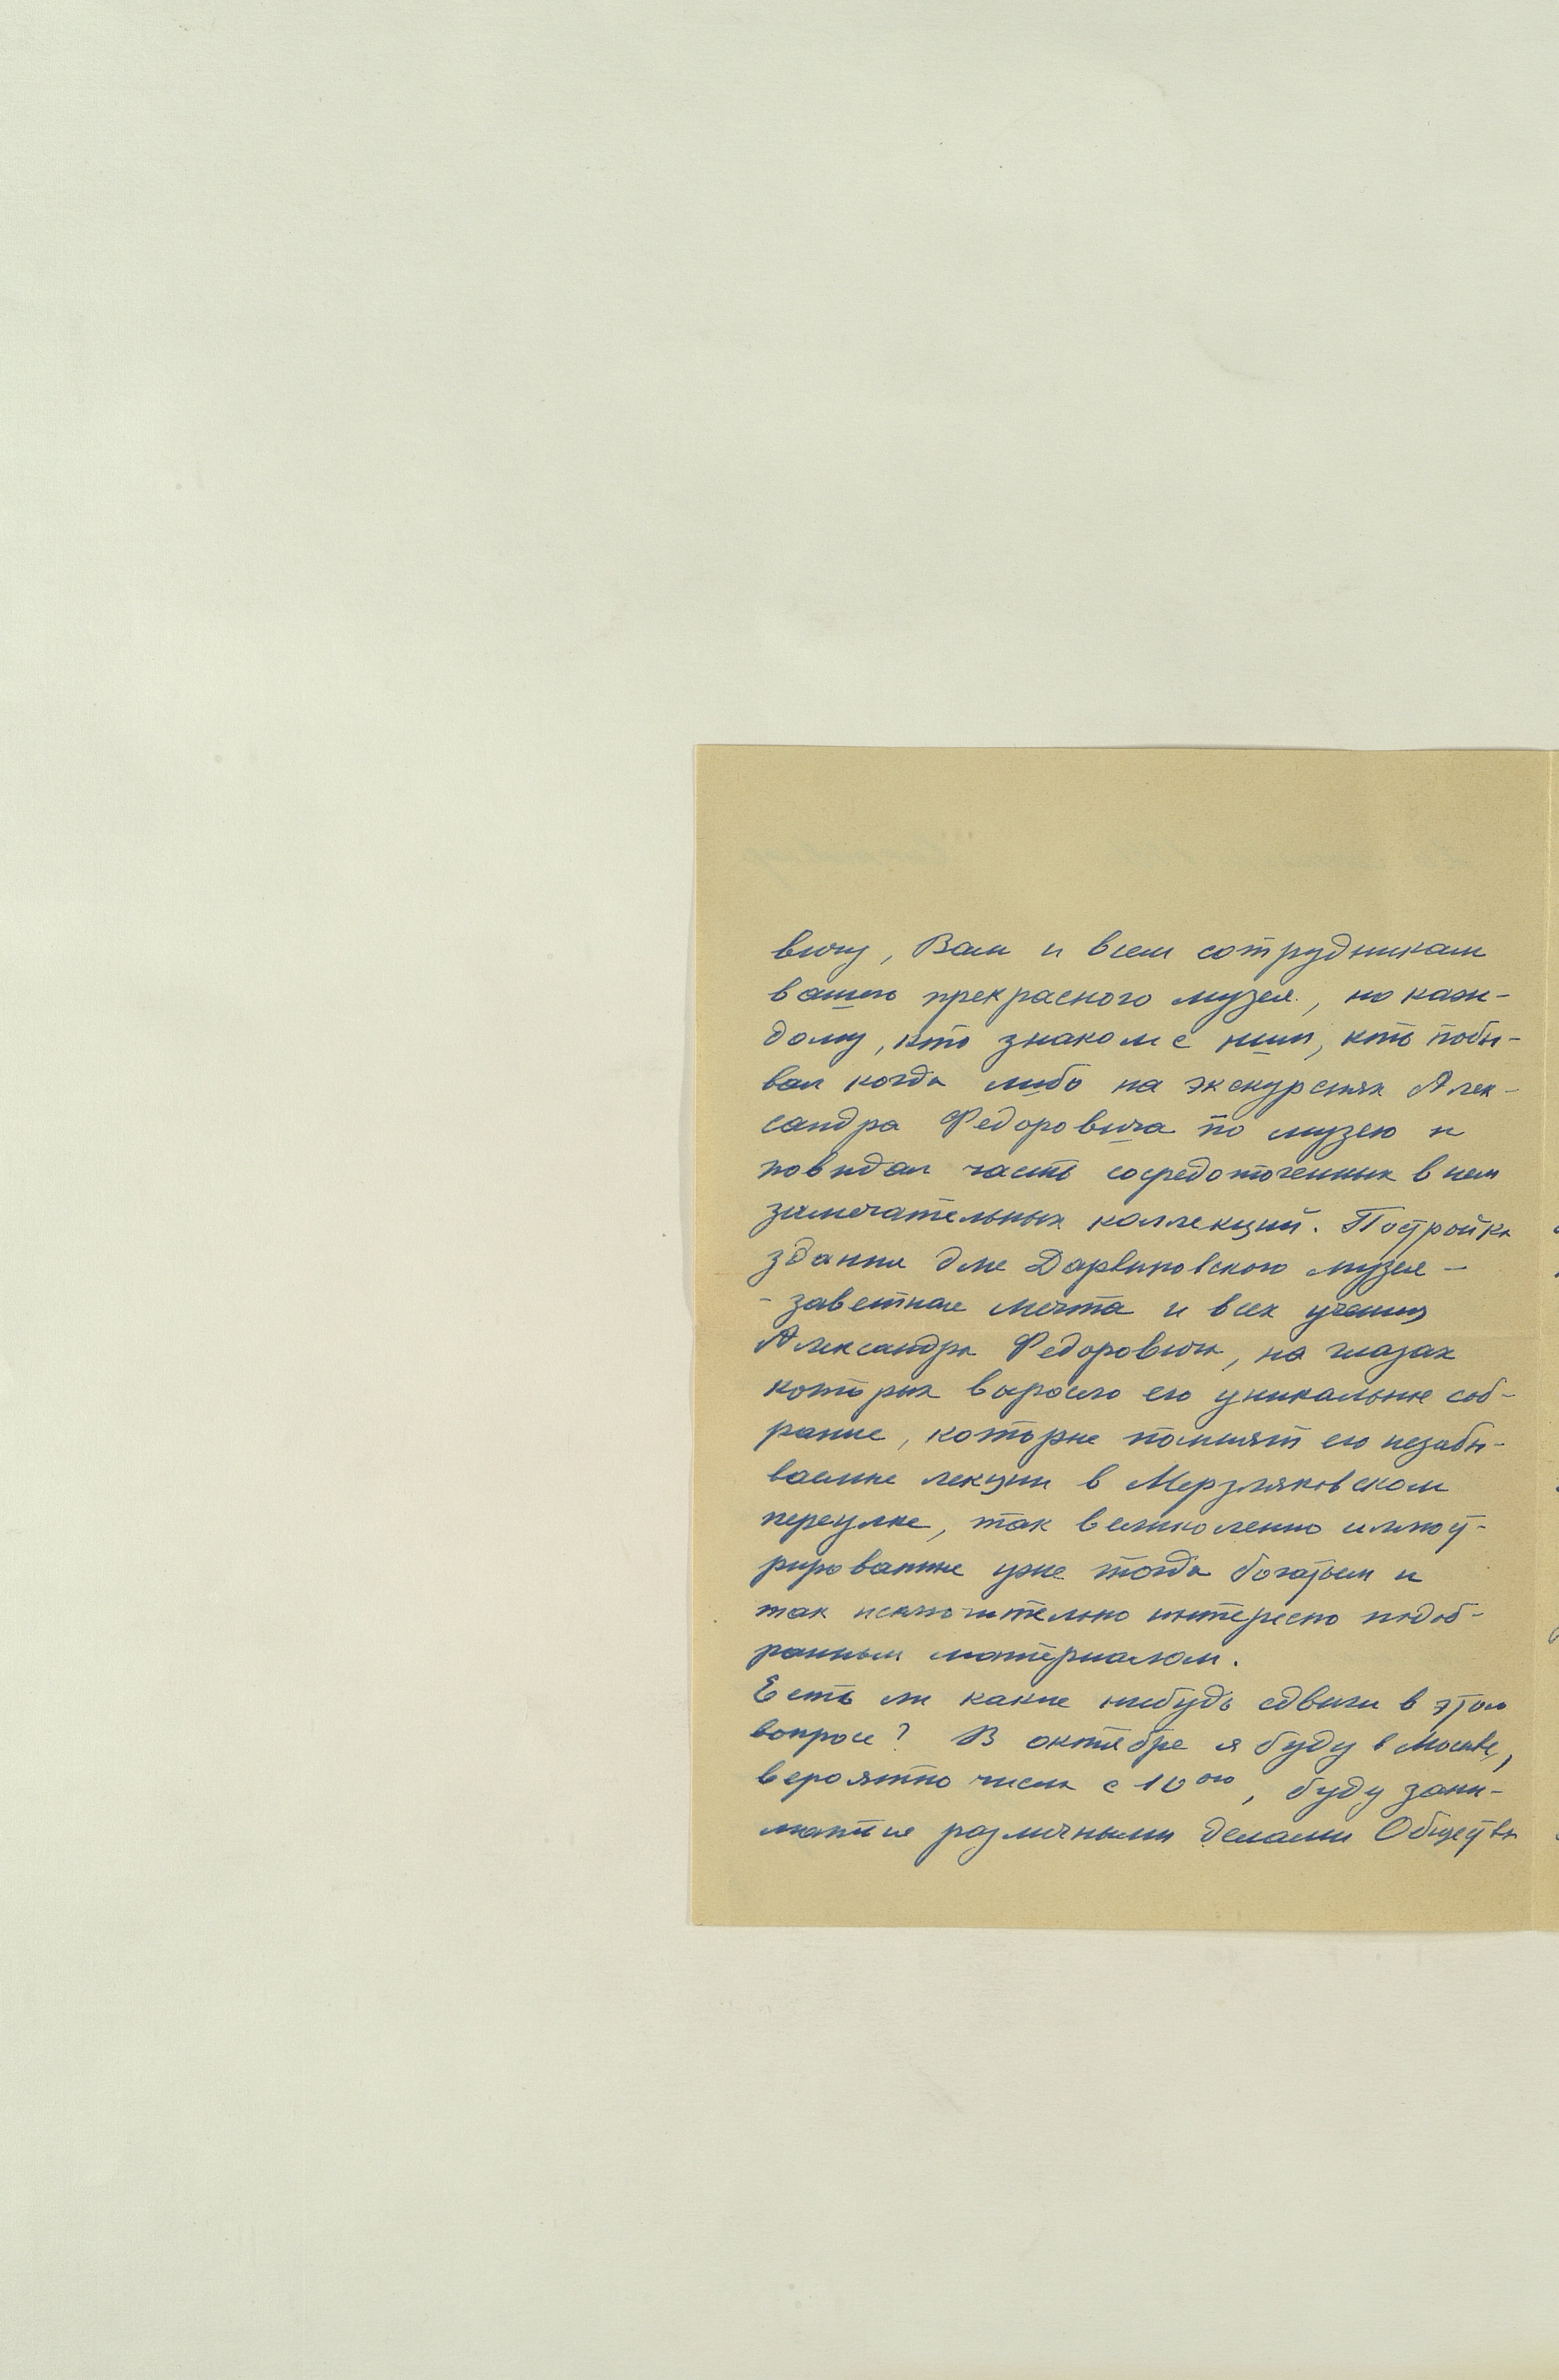 вичу, Вам и всем сотрудникам
вашего прекрасного музея, но каж-
дому, кто знаком с ним, кто побы-
вал когда либо на экскурсиях Алек-
сандра Федоровича по музею и
повидал часть сосредоточенных в нем
замечательных коллекций. Постройка
здания для Дарвиновского музея -
- заветная мечта и всех учениц
Александра Федоровича, на глазах
которых выросло его уникальное соб-
рание, которые помнят его незабы-
ваемые лекции в Мерзляковском
переулке, так великолепно иллюст-
рированные уже тогда богатым и
так исключительно интересно подоб-
ранным материалом.
Есть ли какие нибудь сдвиги в этом
вопросе? В октябре я буду в Москве,
вероятно числа с 10ого, буду зани-
маться различными делами Общества